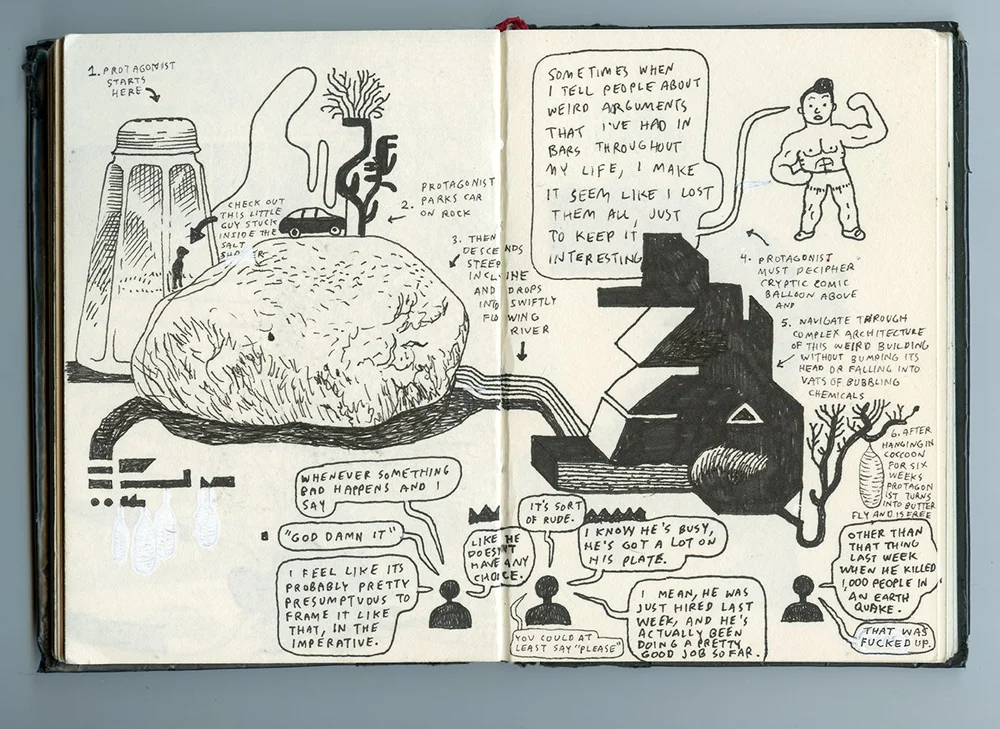 1. PROTAGONIST
STARTS
HERE
CHECK OUT
THIS LITTLE
GUY STUCK
INSIDE THE
SALT
SHAKER
PROTAGONIST
2. PARKS CAR
ON ROCK
3. THEN
DESCENDS
STEEP
INCLINE
AND DROPS
INTO SWIFTLY
FLOWING
RIVER
SOMETIMES WHEN
I TELL PEOPLE ABOUT
WEIRD ARGUMENTS
THAT I'VE HAD IN
BARS THROUGHOUT
MY LIFE, I MAKE
IT SEEM LIKE I LOST
THEM ALL, JUST
TO KEEP IT
INTERESTING
4. PROTAGONIST
MUST DECIPHER
CRYPTIC COMIC
BALLOON ABOVE
AND
5. NAVIGATE THROUGH
COMPLEX ARCHITECTURE
OF THIS WEIRD BUILDING
WITHOUT BUMPING ITS
HEAD OR FALLING INTO
VATS OF BUBBLING
CHEMICALS
6. AFTER
HANGING IN
COCCOON
FOR SIX
WEEKS
PROTAGON
IST TURNS
INTO BUTTER
FLY AND IS FREE
WHENEVER SOMETHING
BAD HAPPENS AND I
SAY
"GOD DAMN IT"
I FEEL LIKE ITS
PROBABLY PRETTY
PRESUMPTUOUS TO
FRAME IT LIKE
THAT, IN THE
IMPERATIVE.
LIKE HE
DOESN'T
HAVE ANY
CHOICE.
IT'S SORT
OF RUDE.
YOU COULD AT
LEAST SAY "PLEASE"
I KNOW HE'S BUSY,
HE'S GOT A LOT ON
HIS PLATE.
I MEAN, HE WAS
JUST HIRED LAST
WEEK, AND HE'S
ACTUALLY BEEN
DOING A PRETTY
GOOD JOB SO FAR.
OTHER THAN
THAT THING
LAST WEEK
WHEN HE KILLED
1,000 PEOPLE IN
AN EARTH
QUAKE.
THAT WAS
FUCKED UP.